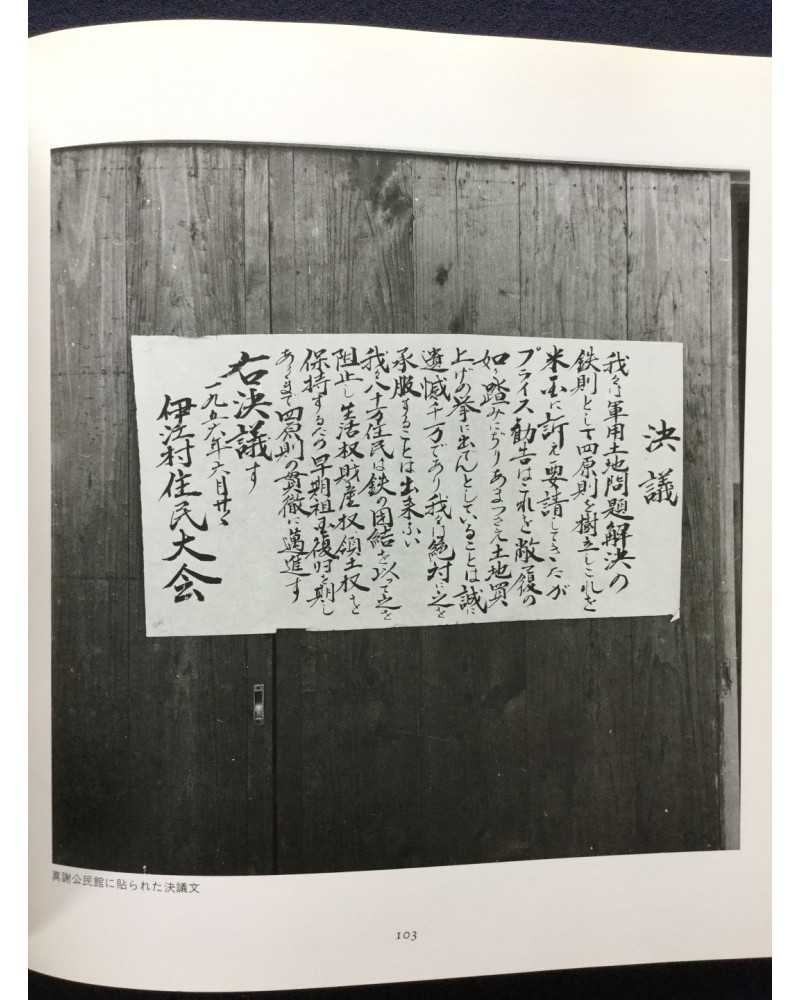 決議
我々は軍用土地問題解決の
鉄則として四原則を樹立しこれを
米国に訴え要請してきたが
プライス勧告はこれを敝履の
如く踏みにぢりあまつさえ土地買
上げの挙に出でんとしていることは誠に
遺憾千万であり我々は絶対に之を
承服することは出来ない
我々八十万住民は鉄の団結を以って之を
阻止し生活权財産权領土权を
保持するため早期祖国復归を期し
あくまで四原則の貫徹に邁進す
右決議す
一九五六年六月廿
伊江村住民大会
真謝公民館に貼られた決議文
103